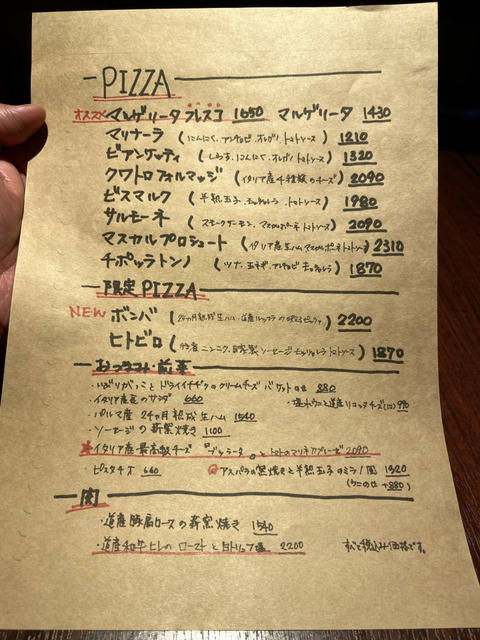 PIZZA
オススメ マルゲリータ フレスコ 1650 マルゲリータ 1430
マリナーラ (にんにく、アンチョビ、オレガノ、トマトソース) 1210
ビアンケッティ (しらす、にんにく、オレガノ、トマトソース) 1320
クワトロフォルマッジ (イタリア産4種類のチーズ) 2090
ビスマルク (半熟玉子、モッツァレラ、トマトソース) 1980
サルモーネ (スモークサーモン、マスカルポーネ、トマトソース) 2090
マスカルプロシュート (イタリア産生ハム、マスカルポーネ、トマトソース) 2310
チポッラトンノ (ツナ、玉ネギ、アンチョビ、モッツァレラ) 1870
限定PIZZA
NEW ボンバ (24ヶ月熟成生ハム、道産ルッコラの) 2200
ヒトビロ (行者ニンニク、自家製ソーセージ、モッツァレラ、トマトソース) 1870
おつまみ・前菜
・いぶりがっことドライイチヂクのクリームチーズ バゲット 880
・イタリア産 サラダ 660 ・塩水ウニと道産リコッタチーズ 990
・パルマ産24ヶ月熟成生ハム 1540
・ソーセージの薪窯焼き 1100
★イタリア産 最高級チーズ 『ブッラータ』とトマトのマリネ カプレーゼ 2090
・ピスタチオ 660 アスパラの窯焼きと半熟玉子のミラノ風 1320
(ウニのせ +880)
肉
・道産豚肩ロースの薪窯焼き 1540
・道産和牛ヒレのローストと目トリュフ塩 2200 すべて税込み価格です。